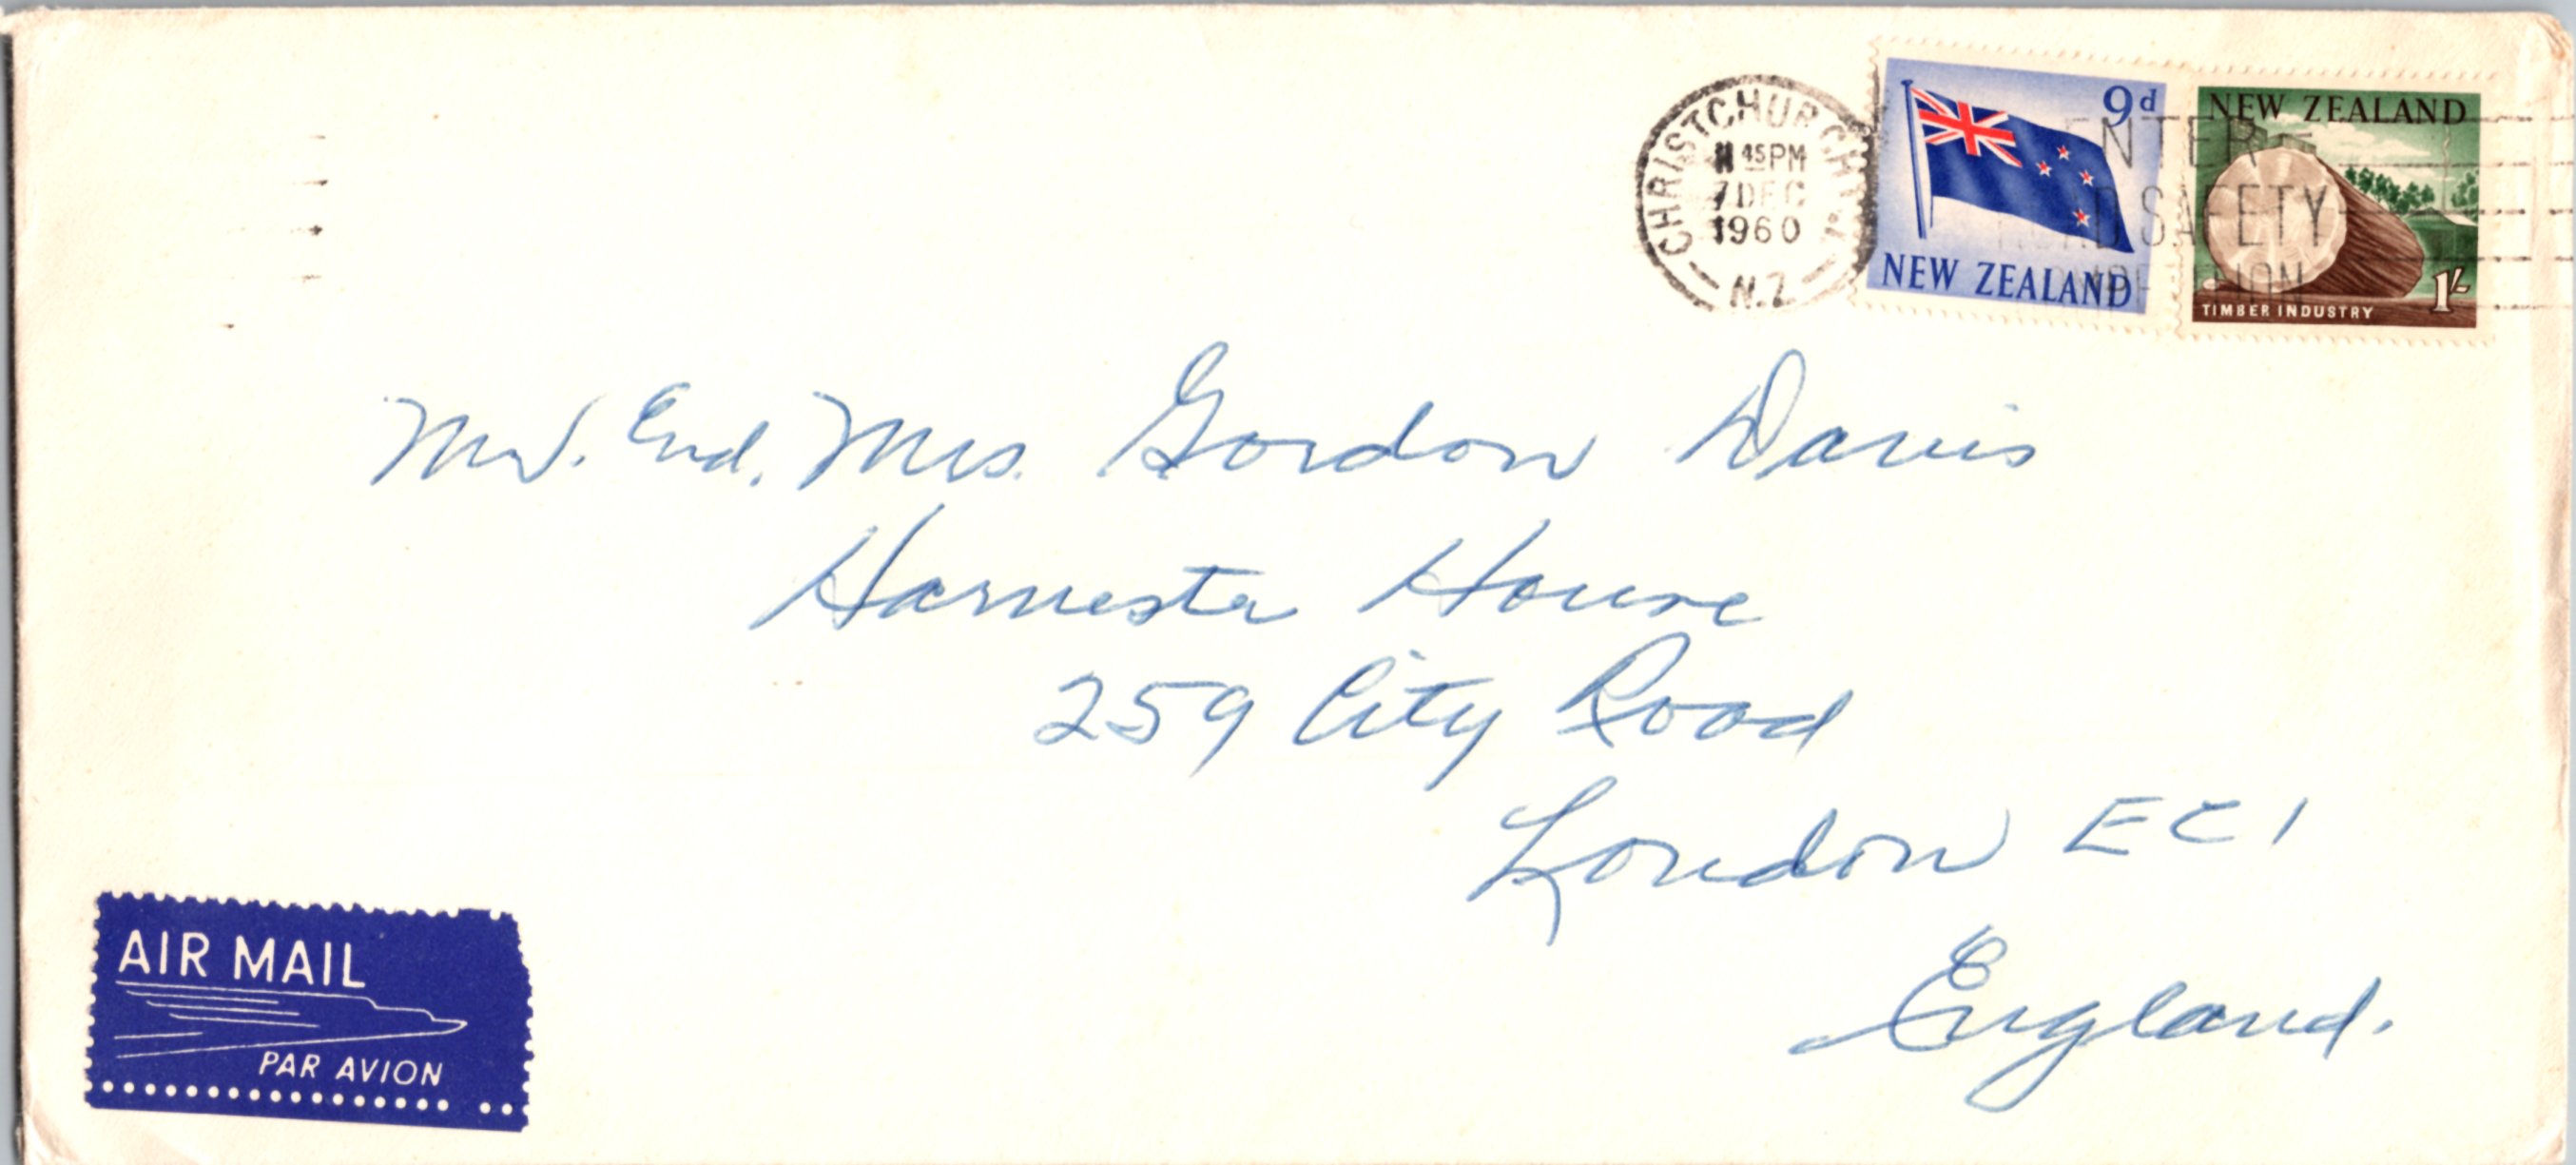 CHRISTCHURCH
45PM
7 DEC
1960
N.Z.
9d
NEW ZEALAND
NEW ZEALAND
TIMBER INDUSTRY
1/-
ENTER
ROAD SAFETY
Mr. End. Mrs. Gordon Davis
Harvester House
259 City Road
London EC1
England.
AIR MAIL
PAR AVION